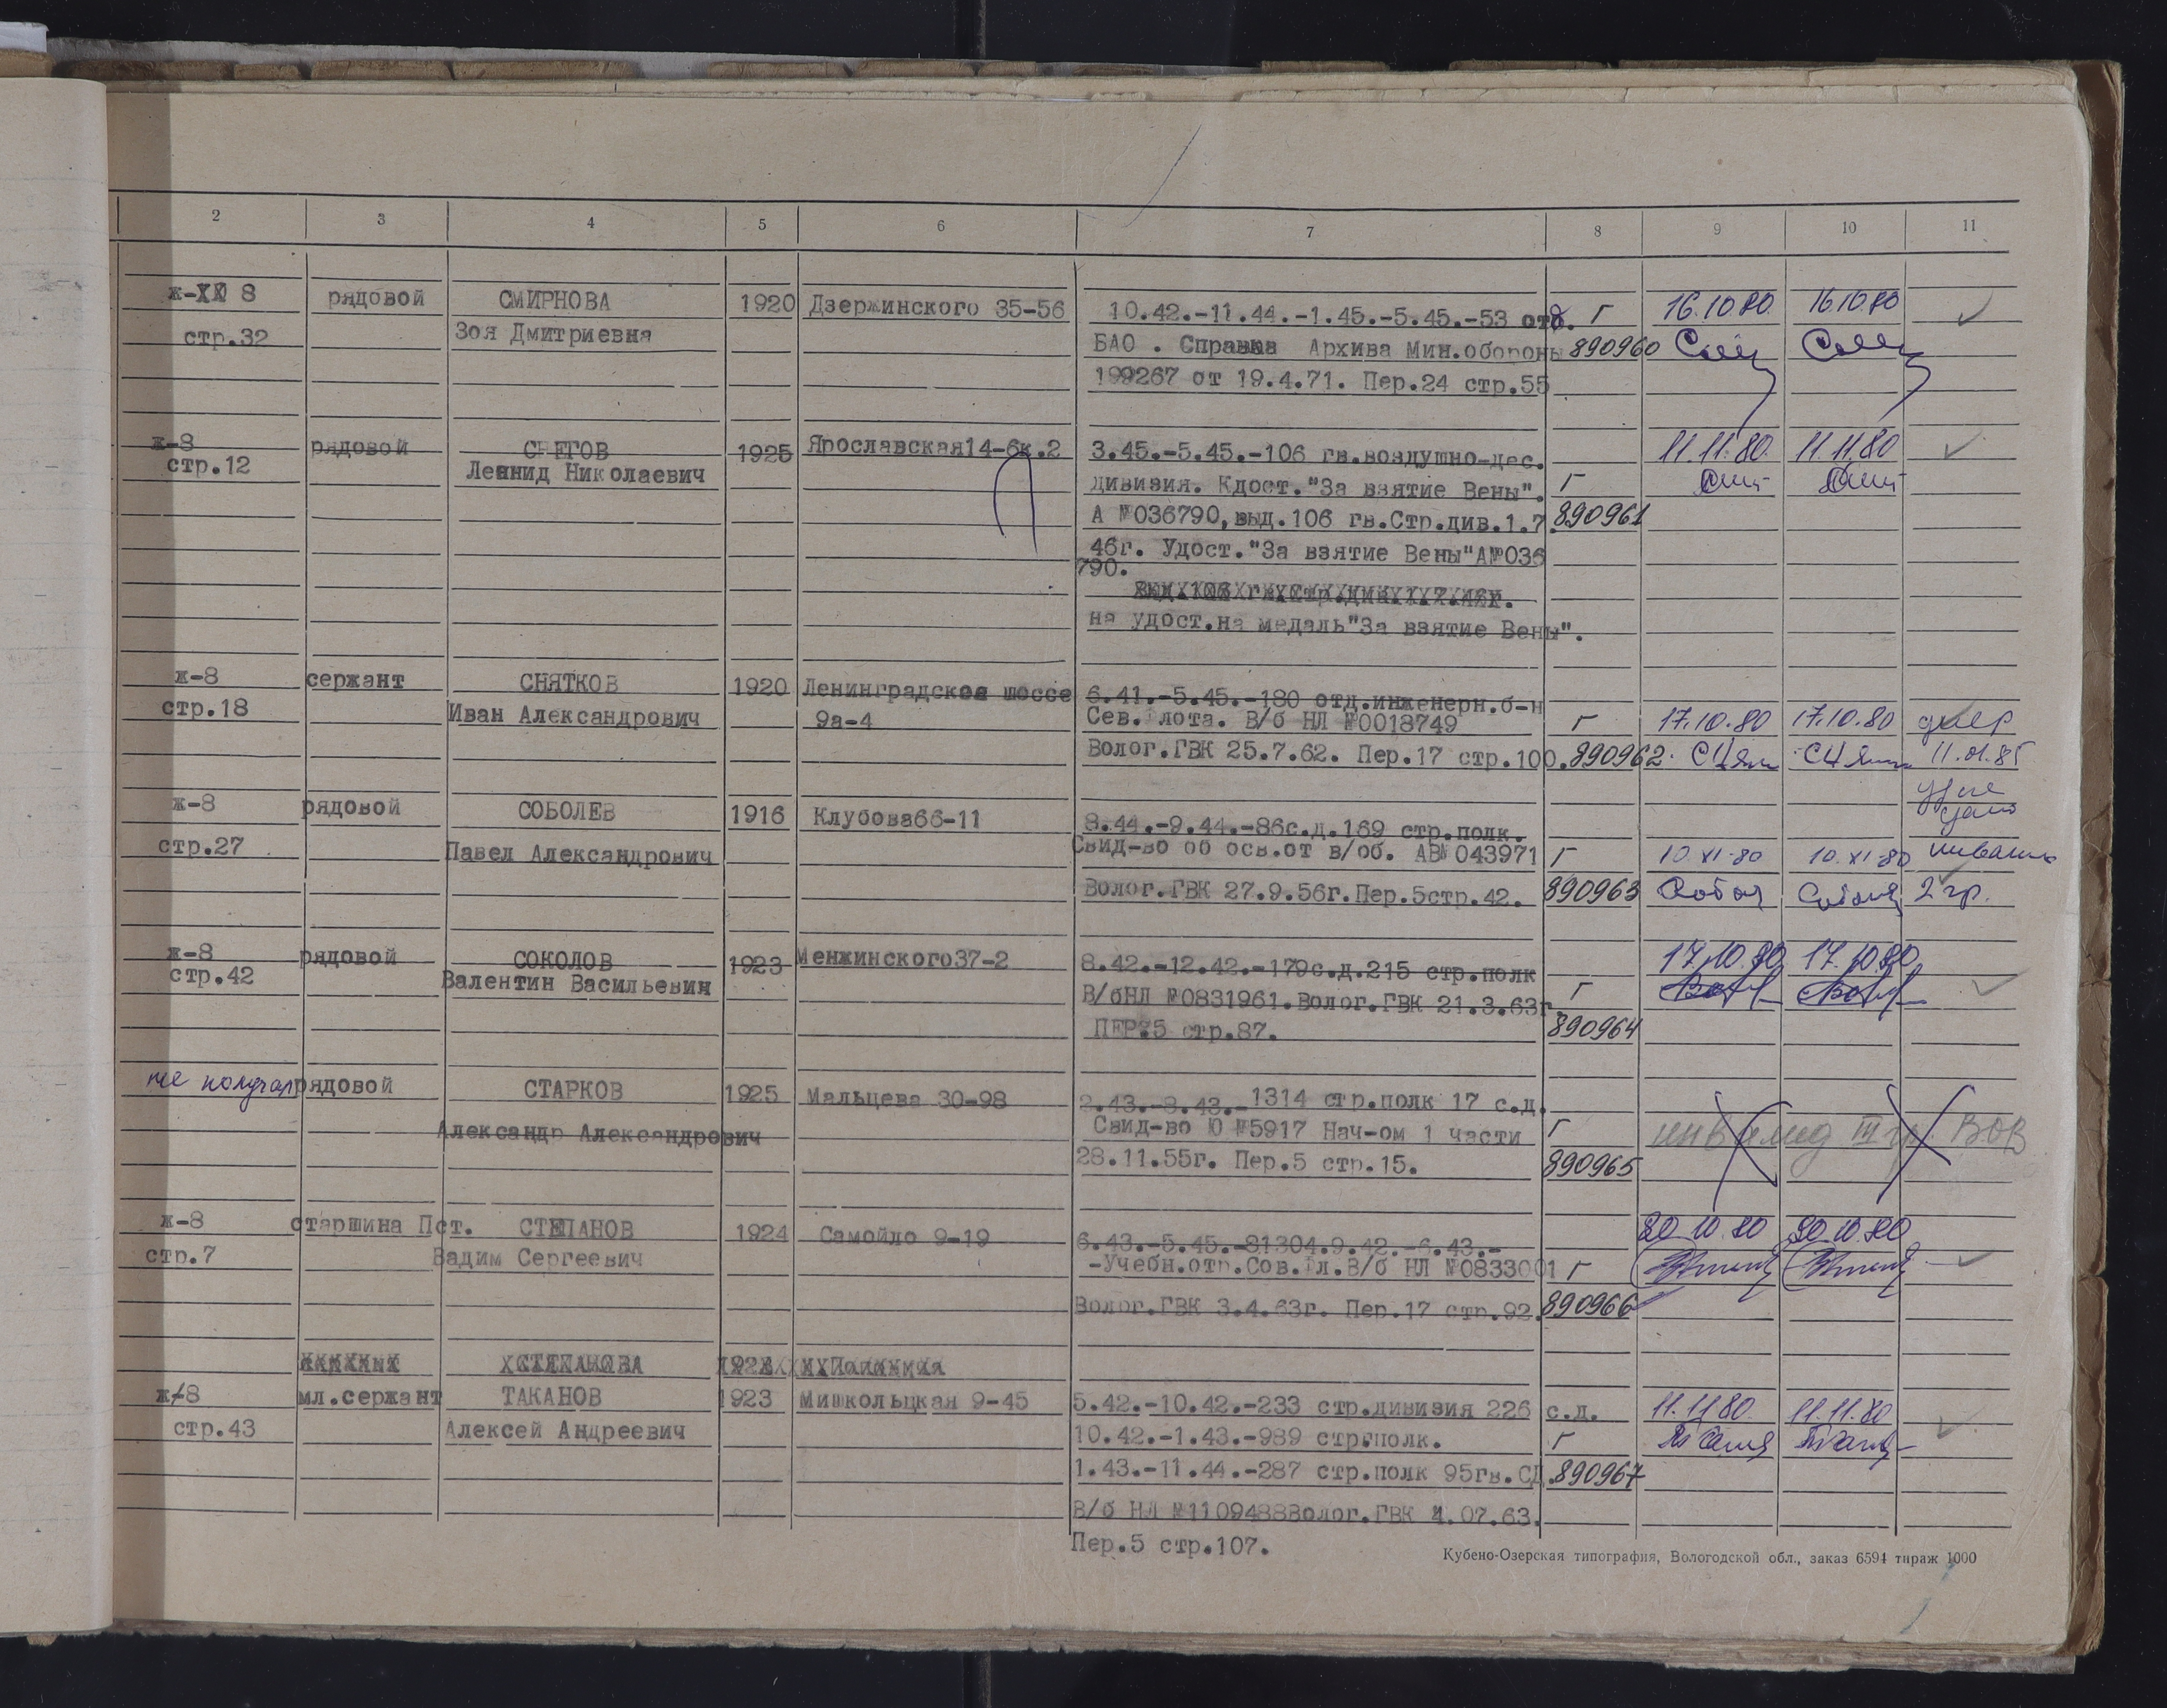 2 3 4 5 6 7 8 9 10 11
ж-XX 8 рядовой СМИРНОВА 1920 Дзержинского 35-56 10.42.-11.44.-1.45.-5.45.-53 отб. Г 16.10.80. 16.10.80
стр.32 Зоя Дмитриевна БАО . Справка Архива Мин.обороны 890960
199267 от 19.4.71. Пер.24 стр.55
ж-8 рядовой СНЕГОВ 1925 Ярославская14-6к.2 3.45.-5.45.-106 гв.воздушно-дес. 11.11.80. 11.11.80
стр.12 Леннид Николаевич дивизия. Кдост."За взятие Вены". Г
А №036790,выд.106 гв.Стр.див.1.7. 890961
46г. Удост."За взятие Вены"А№036
790.
на удост.на медаль"За взятие Вены".
ж-8 сержант СНЯТКОВ 1920 Ленинградское шоссе 6.41.-5.45.-180 отд.инженерн.б-н
стр.18 Иван Александрович 9а-4 Сев.флота. В/б НЛ №0018749 Г 17.10.80 17.10.80 умер
Волог.ГВК 25.7.62. Пер.17 стр.100. 890962. 11.01.85
ж-8 рядовой СОБОЛЕВ 1916 Клубова66-11 8.44.-9.44.-86с.д.169 стр.полк.
стр.27 Павел Александрович Свид-во об осв.от в/об. АВ№043971 Г 10.XI-80 10.XI-80
Волог.ГВК 27.9.56г.Пер.5стр.42. 890963 2 гр.
ж-8 рядовой СОКОЛОВ 1923 Менжинского37-2 8.42.-12.42.-179с.д.215 стр.полк 17.10.80 17.10.80
стр.42 Валентин Васильевич В/бНЛ №0831961.Волог.ГВК 21.3.63г. Г
ПЕР.5 стр.87. 890964
не получал рядовой СТАРКОВ 1925 Мальцева 30-98 2.43.-8.43.-1314 стр.полк 17 с.д.
Александр Александрович Свид-во Ю №5917 Нач-ом 1 части Г инвалид III гр. ВОВ
28.11.55г. Пер.5 стр.15. 890965
ж-8 старшина Пст. СТЕПАНОВ 1924 Самойло 9-19 6.43.-5.45.-81304.9.42.-6.43.- 30.10.80 30.10.80
стр.7 Вадим Сергеевич -Учебн.отр.Сов.Фл.В/б НЛ №0833001 Г
Волог.ГВК 3.4.63г. Пер.17 стр.92. 890966
ж-8 мл.сержант ТАКАНОВ 1923 Мишкольцкая 9-45 5.42.-10.42.-233 стр.дивизия 226 с.д. 11.11.80. 11.11.80
стр.43 Алексей Андреевич 10.42.-1.43.-989 стр.полк. Г
1.43.-11.44.-287 стр.полк 95гв.СД. 890967
В/б НЛ №1109488Волог.ГВК 4.07.63.
Пер.5 стр.107.
Кубено-Озерская типография, Вологодской обл., заказ 6594 тираж 1000